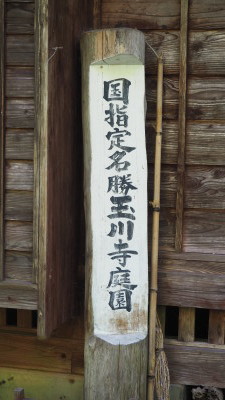 国指定名勝玉川寺庭園